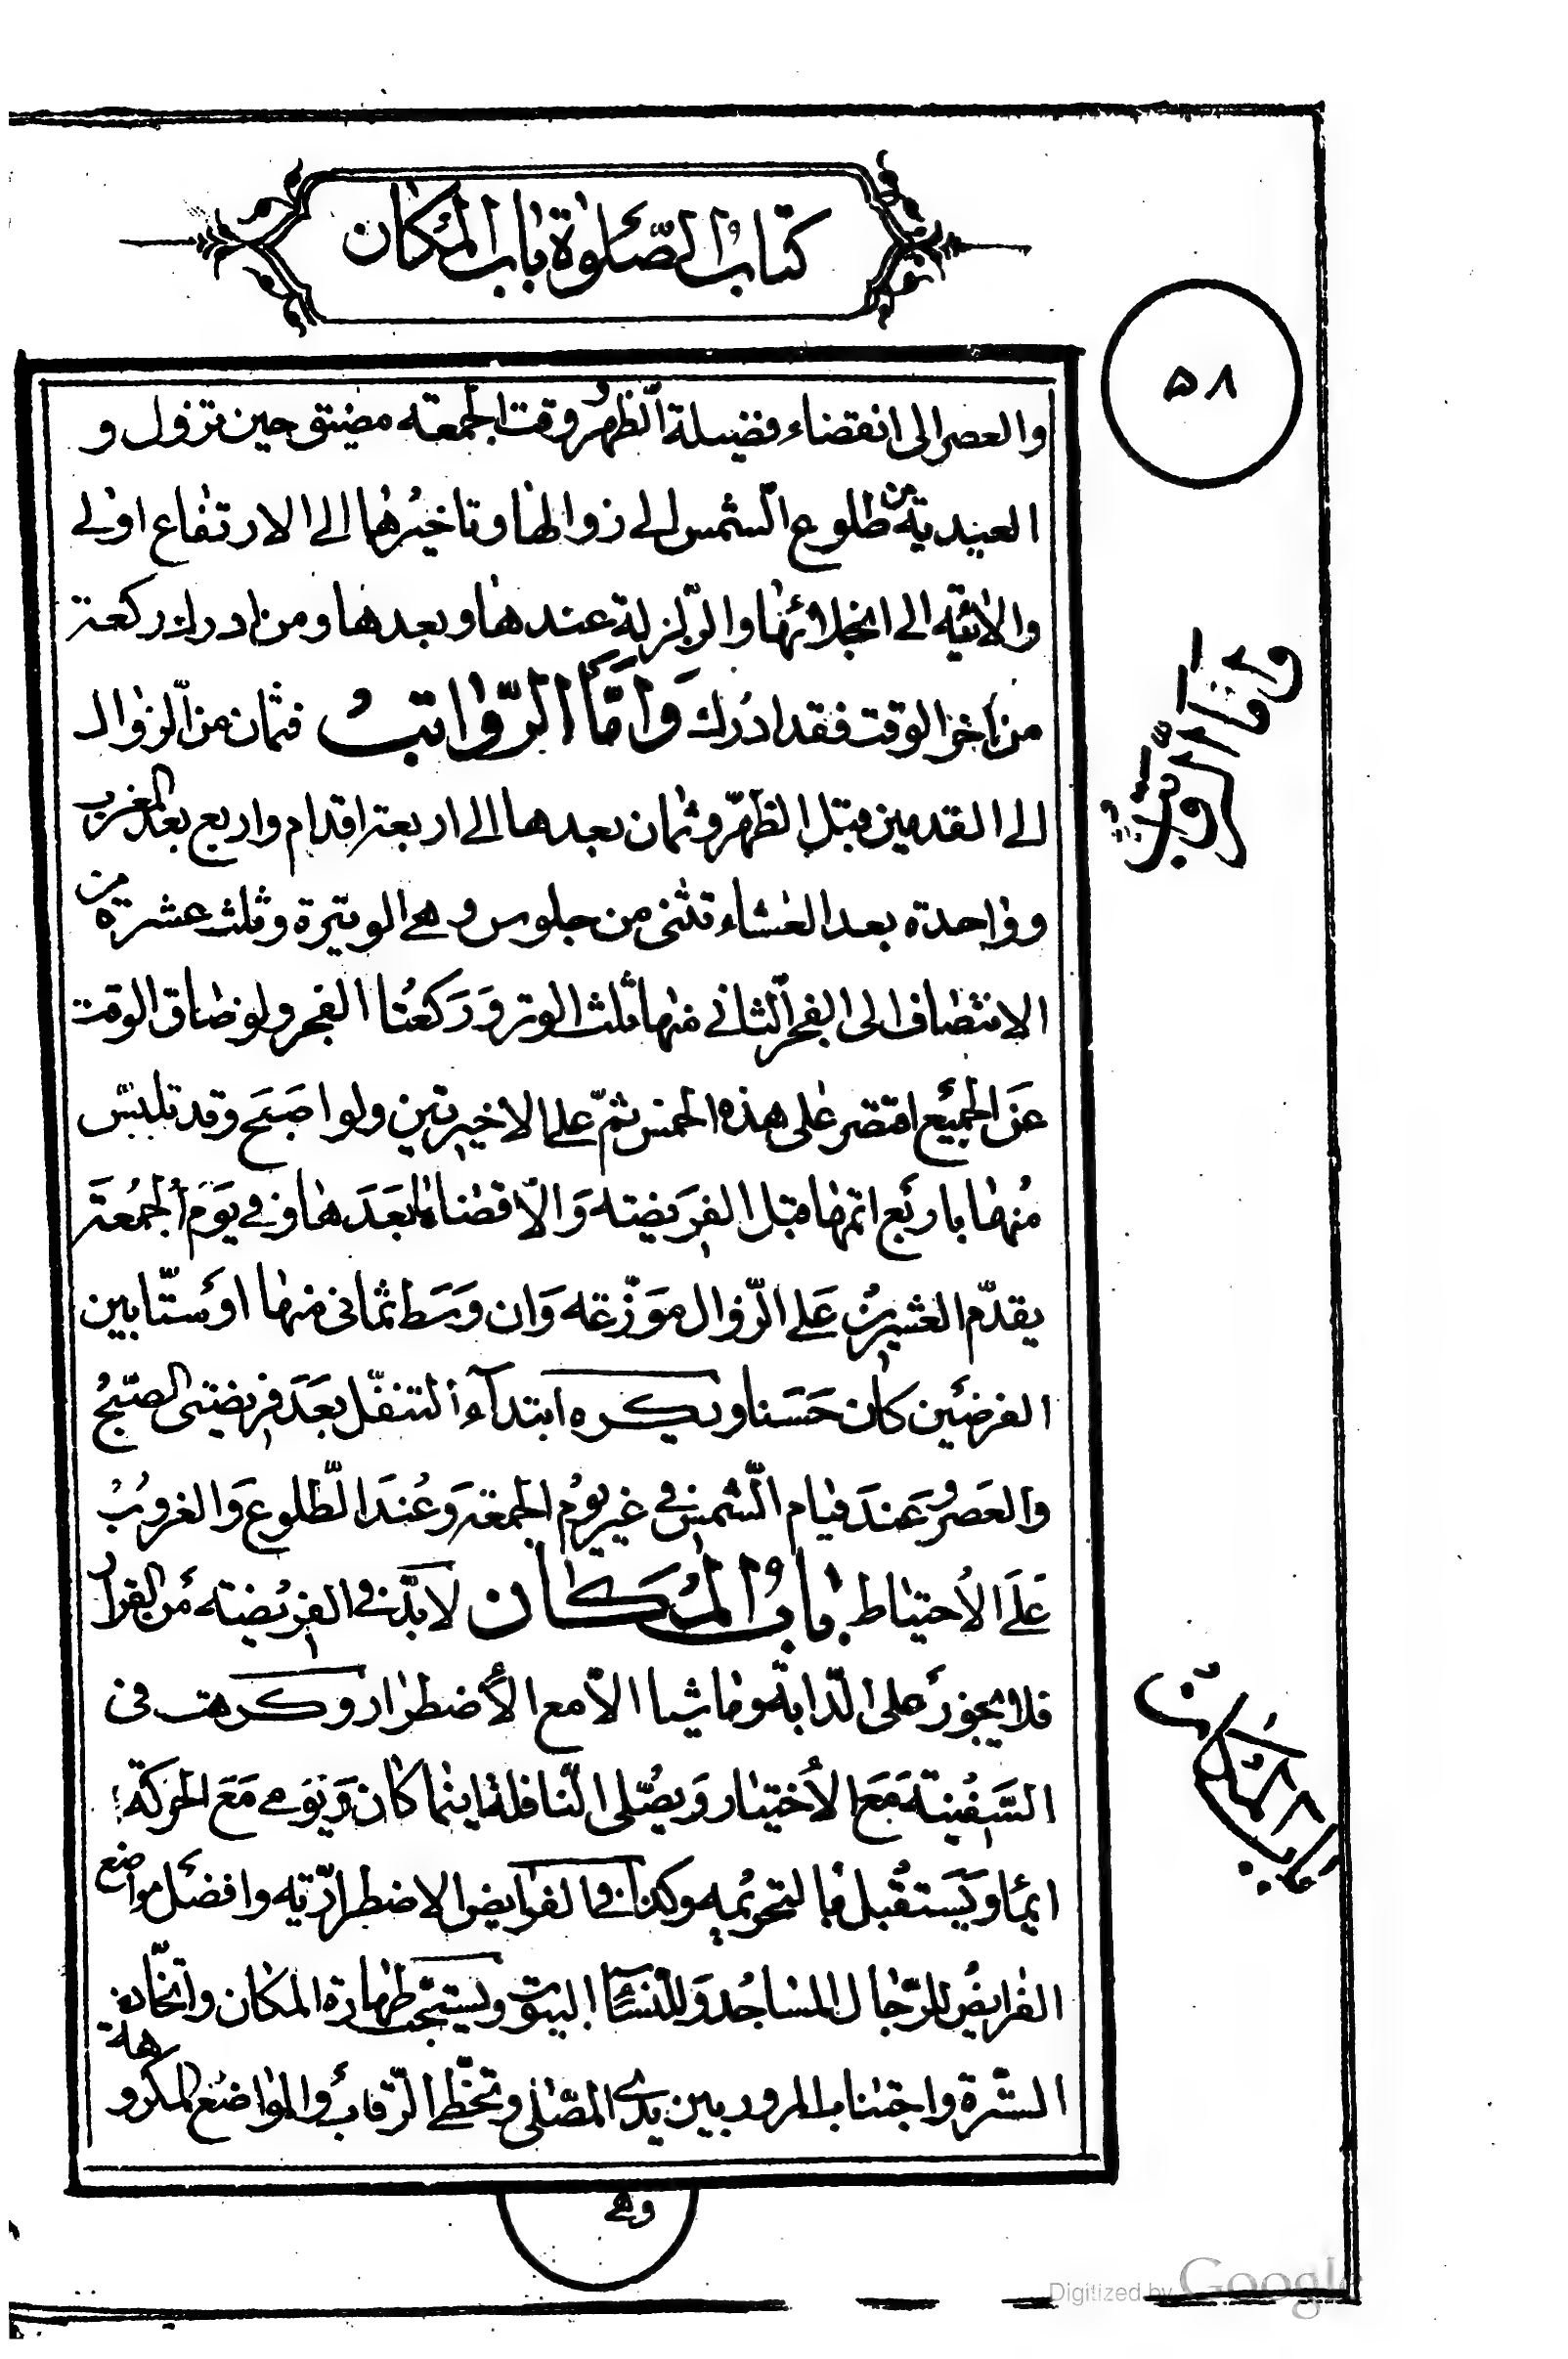 كتاب الصلوة باب المكان
۵۸
والعصر الى انقضاء فضيلة الظهر ووقت الجمعة مضيق حين تزول و
العيدية من طلوع الشمس الى زوالها وتاخيرها الى الارتفاع اولى
والاتقيه الى انجلائها والزلزلة عندها وبعدها ومن ادرك ركعة
من اخر الوقت فقد ادرك وَامَّا الرّواتبُ فثمان من الزوال
الى القدمين قبل الظهر وثمان بعدها الى اربعة اقدام واربع بعد المغرب
وواحدة بعد العشاء تثنى من جلوس وهى الوتيرة وثلث عشرة من
الانتصاف الى الفجر الثانى منها ثلث الوتر وَرَكعتا الفجر ولو ضاق الوقت
عَن الجميع اقتصر على هذه الخمس ثمّ على الاخيرتين ولو اصبَح وقد تلبّس
مُنها باربَع اتمها قبل الفريَضة وَالّا قضاها بعَدَها وفى يَوَم الجمُعَة
يقدّم العشرين عَلى الزّوال موَزّعة وَان وَسَط ثمانى منها اوستّا بين
الفرضَين كان حَسَنا ويكره ابتداء التنفّل بعَدَ فريضتى الصّبحُ
والعَصر وَعَندَ قيام الشّمس فى غير يوم الجمعة وَعُندَ الطّلوع وَالغروبُ
عَلَى الاُحتياط بابُ المُكَان لابدّ فى الفريُضة مَن القرار
فلا يجَوز عَلى الدّابة وماشيا الّا مع الاُضطرار وكرهت فى
السَّفُينة مَعَ الاُختيار وَيصُلّى النّافلة اينما كان وَيوَمى مَعَ الحركة
ايمَاً وَيَستقُبل بالتحريُمه وكذا فى الفرايض الاضطراريّة وافضَل مواضع
الفرايض للرّجال المساجُد وَللنّسَآ البيوت ويستحَب طهارة المكان واتّخاذ
السّترة واجتناب المرور بين يدَى المصّلى وتخطّى الرّقاب والمواضَع المكروهة
وهى
وَامَّا الرّواتب
باب المَكَان
Digitized by Google